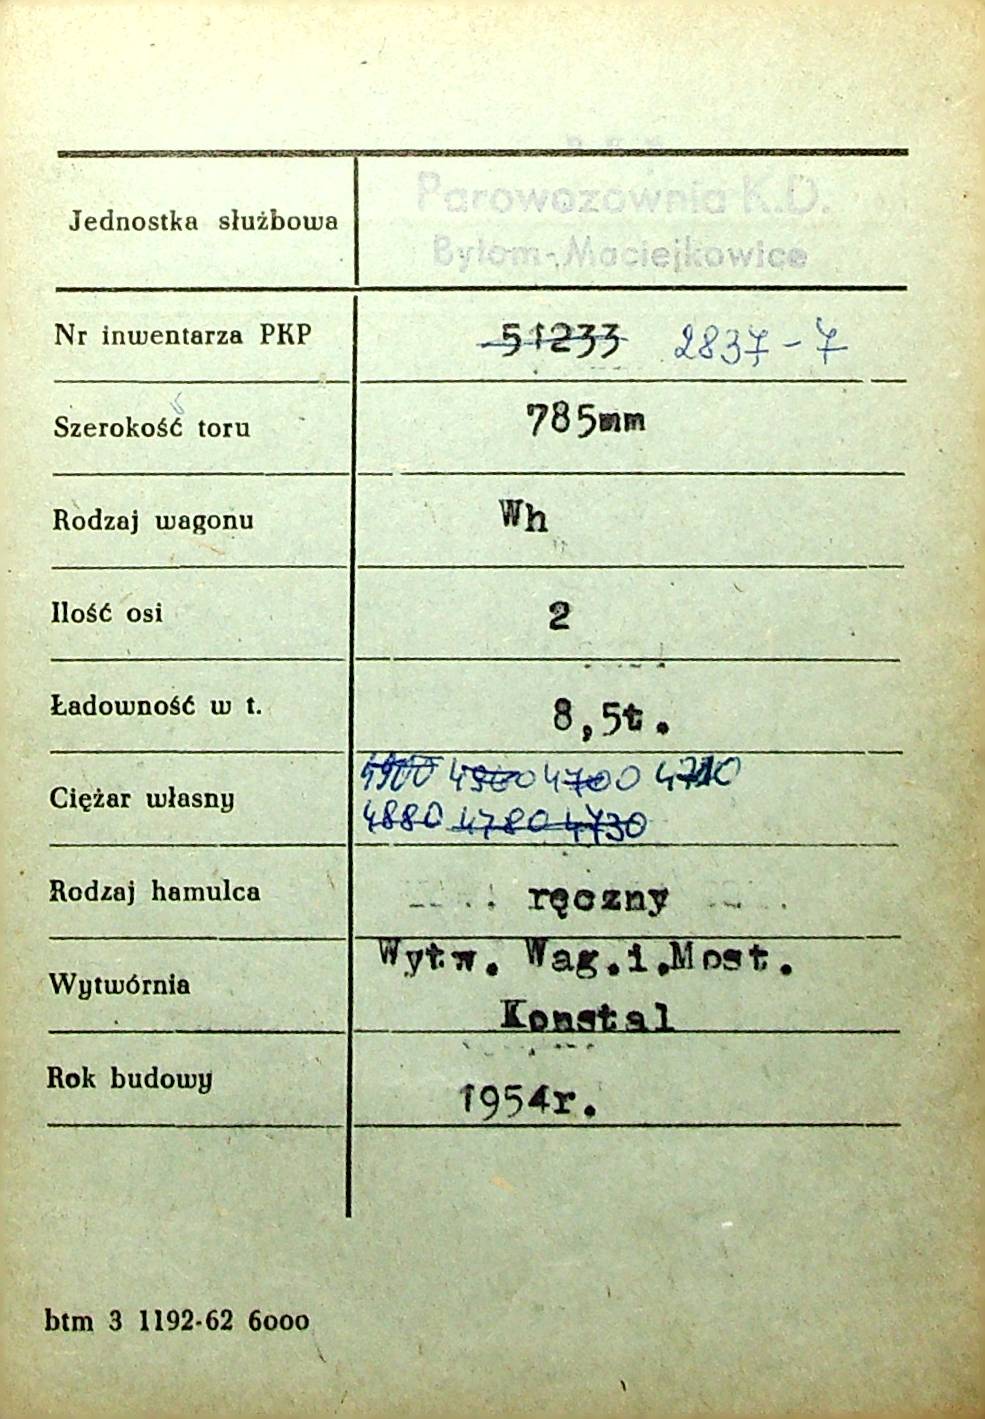 Parowozownia K.D.
Jednostka służbowa
Bytom-Maciejkowice
Nr inwentarza PKP 51233 2837-7
Szerokość toru 785mm
Rodzaj wagonu Wh
Ilość osi 2
Ładowność w t. 8,5t.
4900 4900 4700 4710
Ciężar własny
4880 4780 4730
Rodzaj hamulca ręczny
Wytw. Wag.i.Most.
Wytwórnia
Konstal
Rok budowy 1954r.
btm 3 1192-62 6000